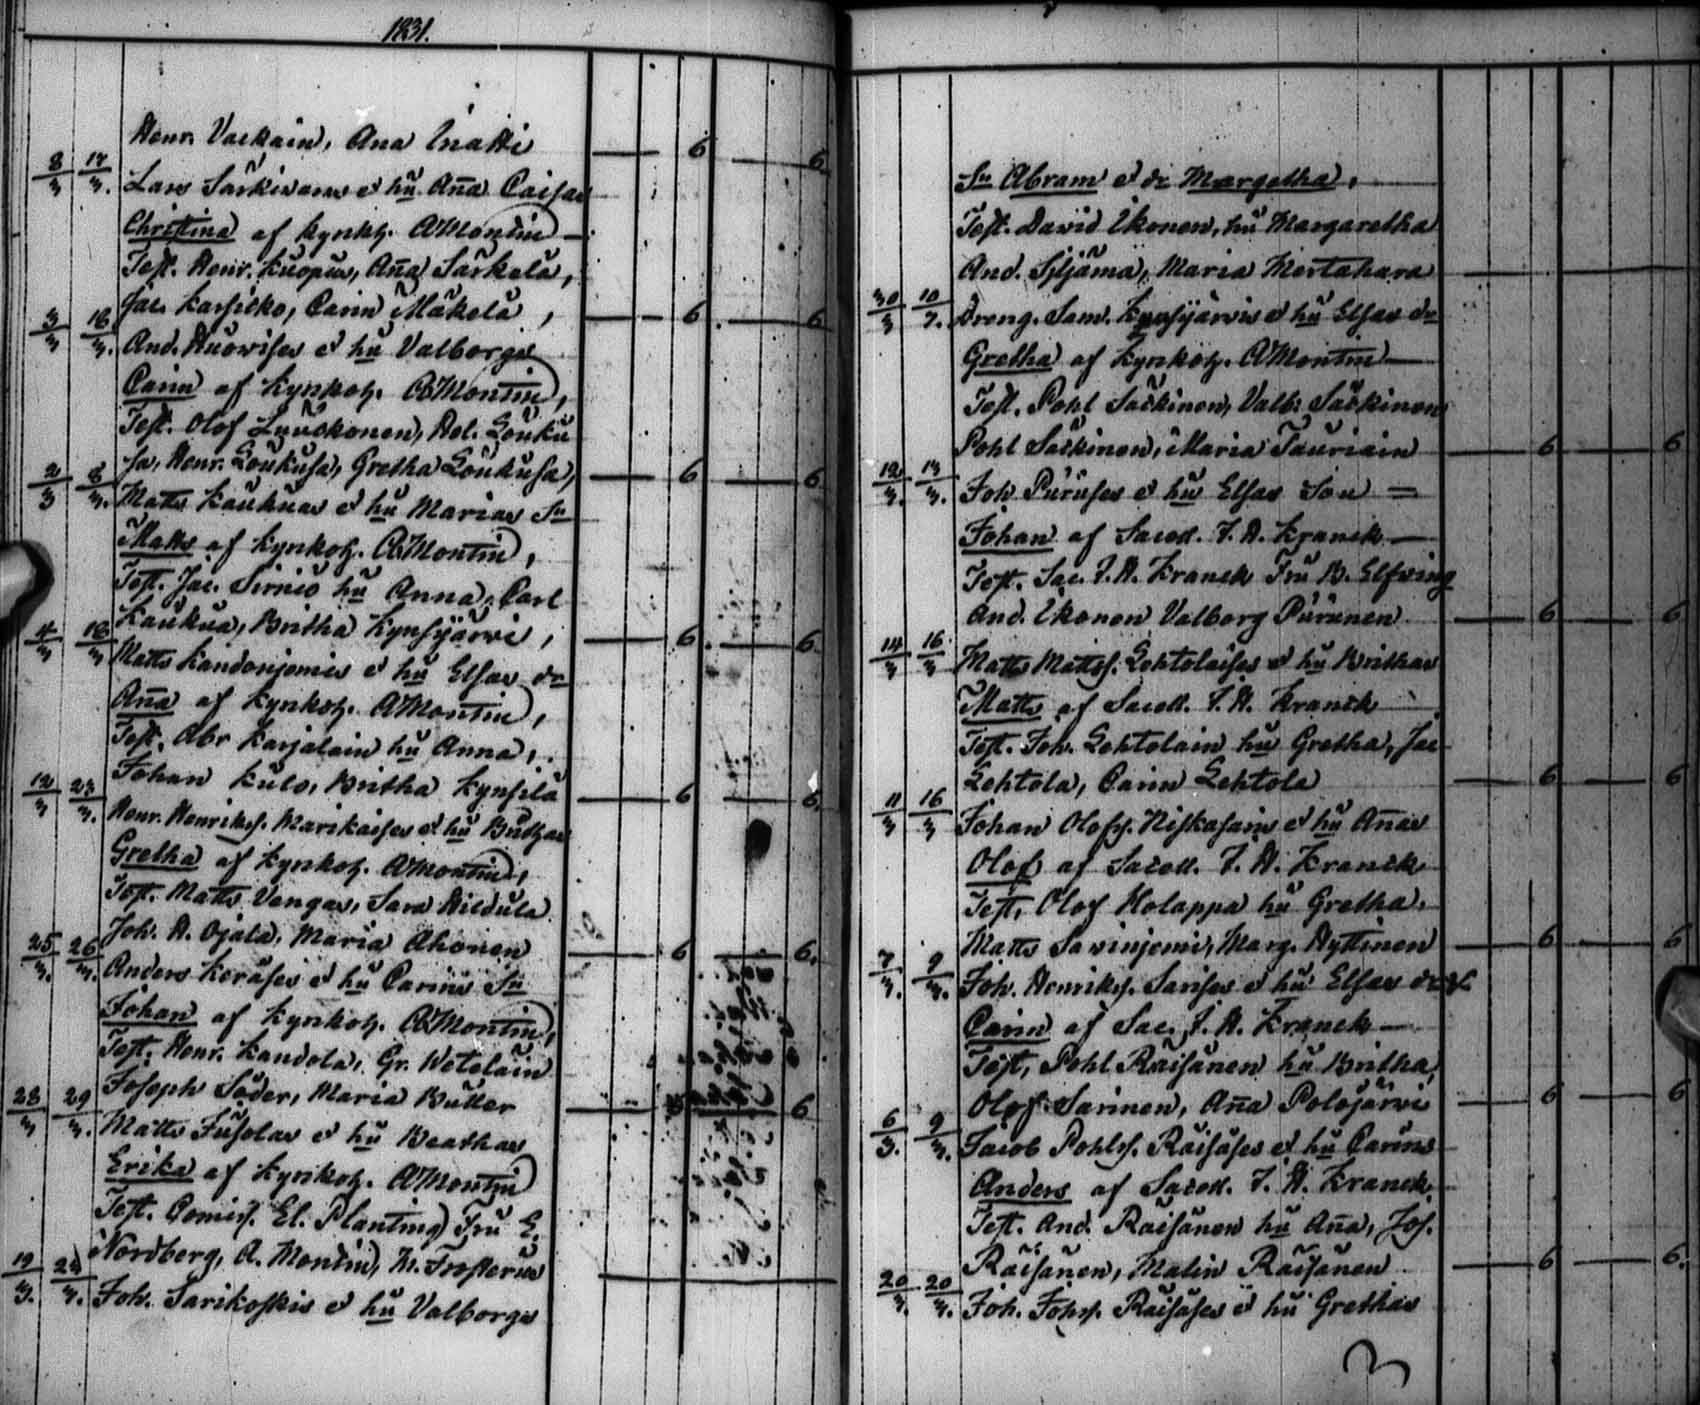 1831.
Henr. Vaekain, Ana Inatti 6 6
8/3 17/3. Lars Särkiwaara et hu Aña Caisas
Christina af kynkh. AMontin
Test. Henr. Kuopus, Aña Särkelä,
Jac. Karsikko, Carin Mäkelä, 6 6
3/3 16/3. And. Huowises et hu Valborgs
Carin af kynkoh. AMontin,
Test. Olof Luuckonen, Hel. Louku
sa, Henr. Loukusa, Gretha Loukusa, 6 6
2/3 6/3. Matts Kaukuas et hu Marias Sn
Matts af kynkoh. AMontin,
Test. Jac. Sirniö hu Anna, Carl
Kaukua, Britha Kynsijärwi, 6 6
4/3 18/3 Matts Kandonjemis et hu Elsas dr
Aña af kynkoh. AMontin,
Test. Abr Karjalain hu Anna,
Johan Kulo, Britha Kynsilä 6 6
12/3 23/3. Henr. Henrikss. Marikaises et hu
Gretha af kynkoh. AMontin,
Test. Matts Vengas, Sara Hildula
Joh. H. Ojala, Maria Ahonen 6 6.
25/3. 26/3. Anders Keräses et hu Carins Sn
Johan af kynkoh. AMontin,
Test. Henr. Kandola, Gr. Wetelain
Joseph Söder, Maria Butter 6
28/3 29/3. Matts Jusolas et hu Beathas
Erika af kynkoh. AMontin
Test. Comiss. El. Planting Fru E.
Nordberg, A. Montin, M. Frosterus
19/3. 24/3. Joh. Sarikoskis et hu Valborgs
Sn Abram et dr Margetha,
Test. David Ikonen, hu Margaretha
And. Syljäma, Maria Mertahara
30/3 10/7. Dreng. Sam. Kynsijärwis et hu Elsas dr
Gretha af kynkoh. AMontin
Test. Pohl Säckinen, Valb: Säckinen
Pohl Säckinen, Maria Tauriain 6 6
12/3. 13/3. Joh Puruses et hu Elsas Son =
Johan af Saced. J. H. Kranck
Test. Sac. J. H. Kranck Fru B. Elfving
And. Ikonen Valborg Purunen 6 6
14/3 16/3 Matts Mattss. Lehtolaises et hu Brithas
Matts af Saced. J. H. Kranck
Test. Joh. Lehtolain hu Gretha, Jac
Lehtola, Carin Lehtola 6 6
11/3 16/3 Johan Olofss. Niskasains et hu Añas
Olof af Saced. J. H. Kranck
Test, Olof Holappa hu Gretha.
Matts Sawinjemi, Marg. Hyttinen 6 6
7/3. 9/3. Joh. Henrikss. Sarises et hu Elsas dr
Carin af Sac. J. H. Kranck
Test, Pohl Räisänen hu Britha,
Olof Sarinen, Aña Polojärwi 6 6
6/3. 9/3. Jacob Pohlss. Räisäses et hu Carins
Anders af Saced. J. H. Kranck
Test. And. Räisänen hu Aña, Jos.
Räisänen, Malin Räisänen 6 6.
20/3. 20/3. Joh. Johss. Räisäses et hu Grethas